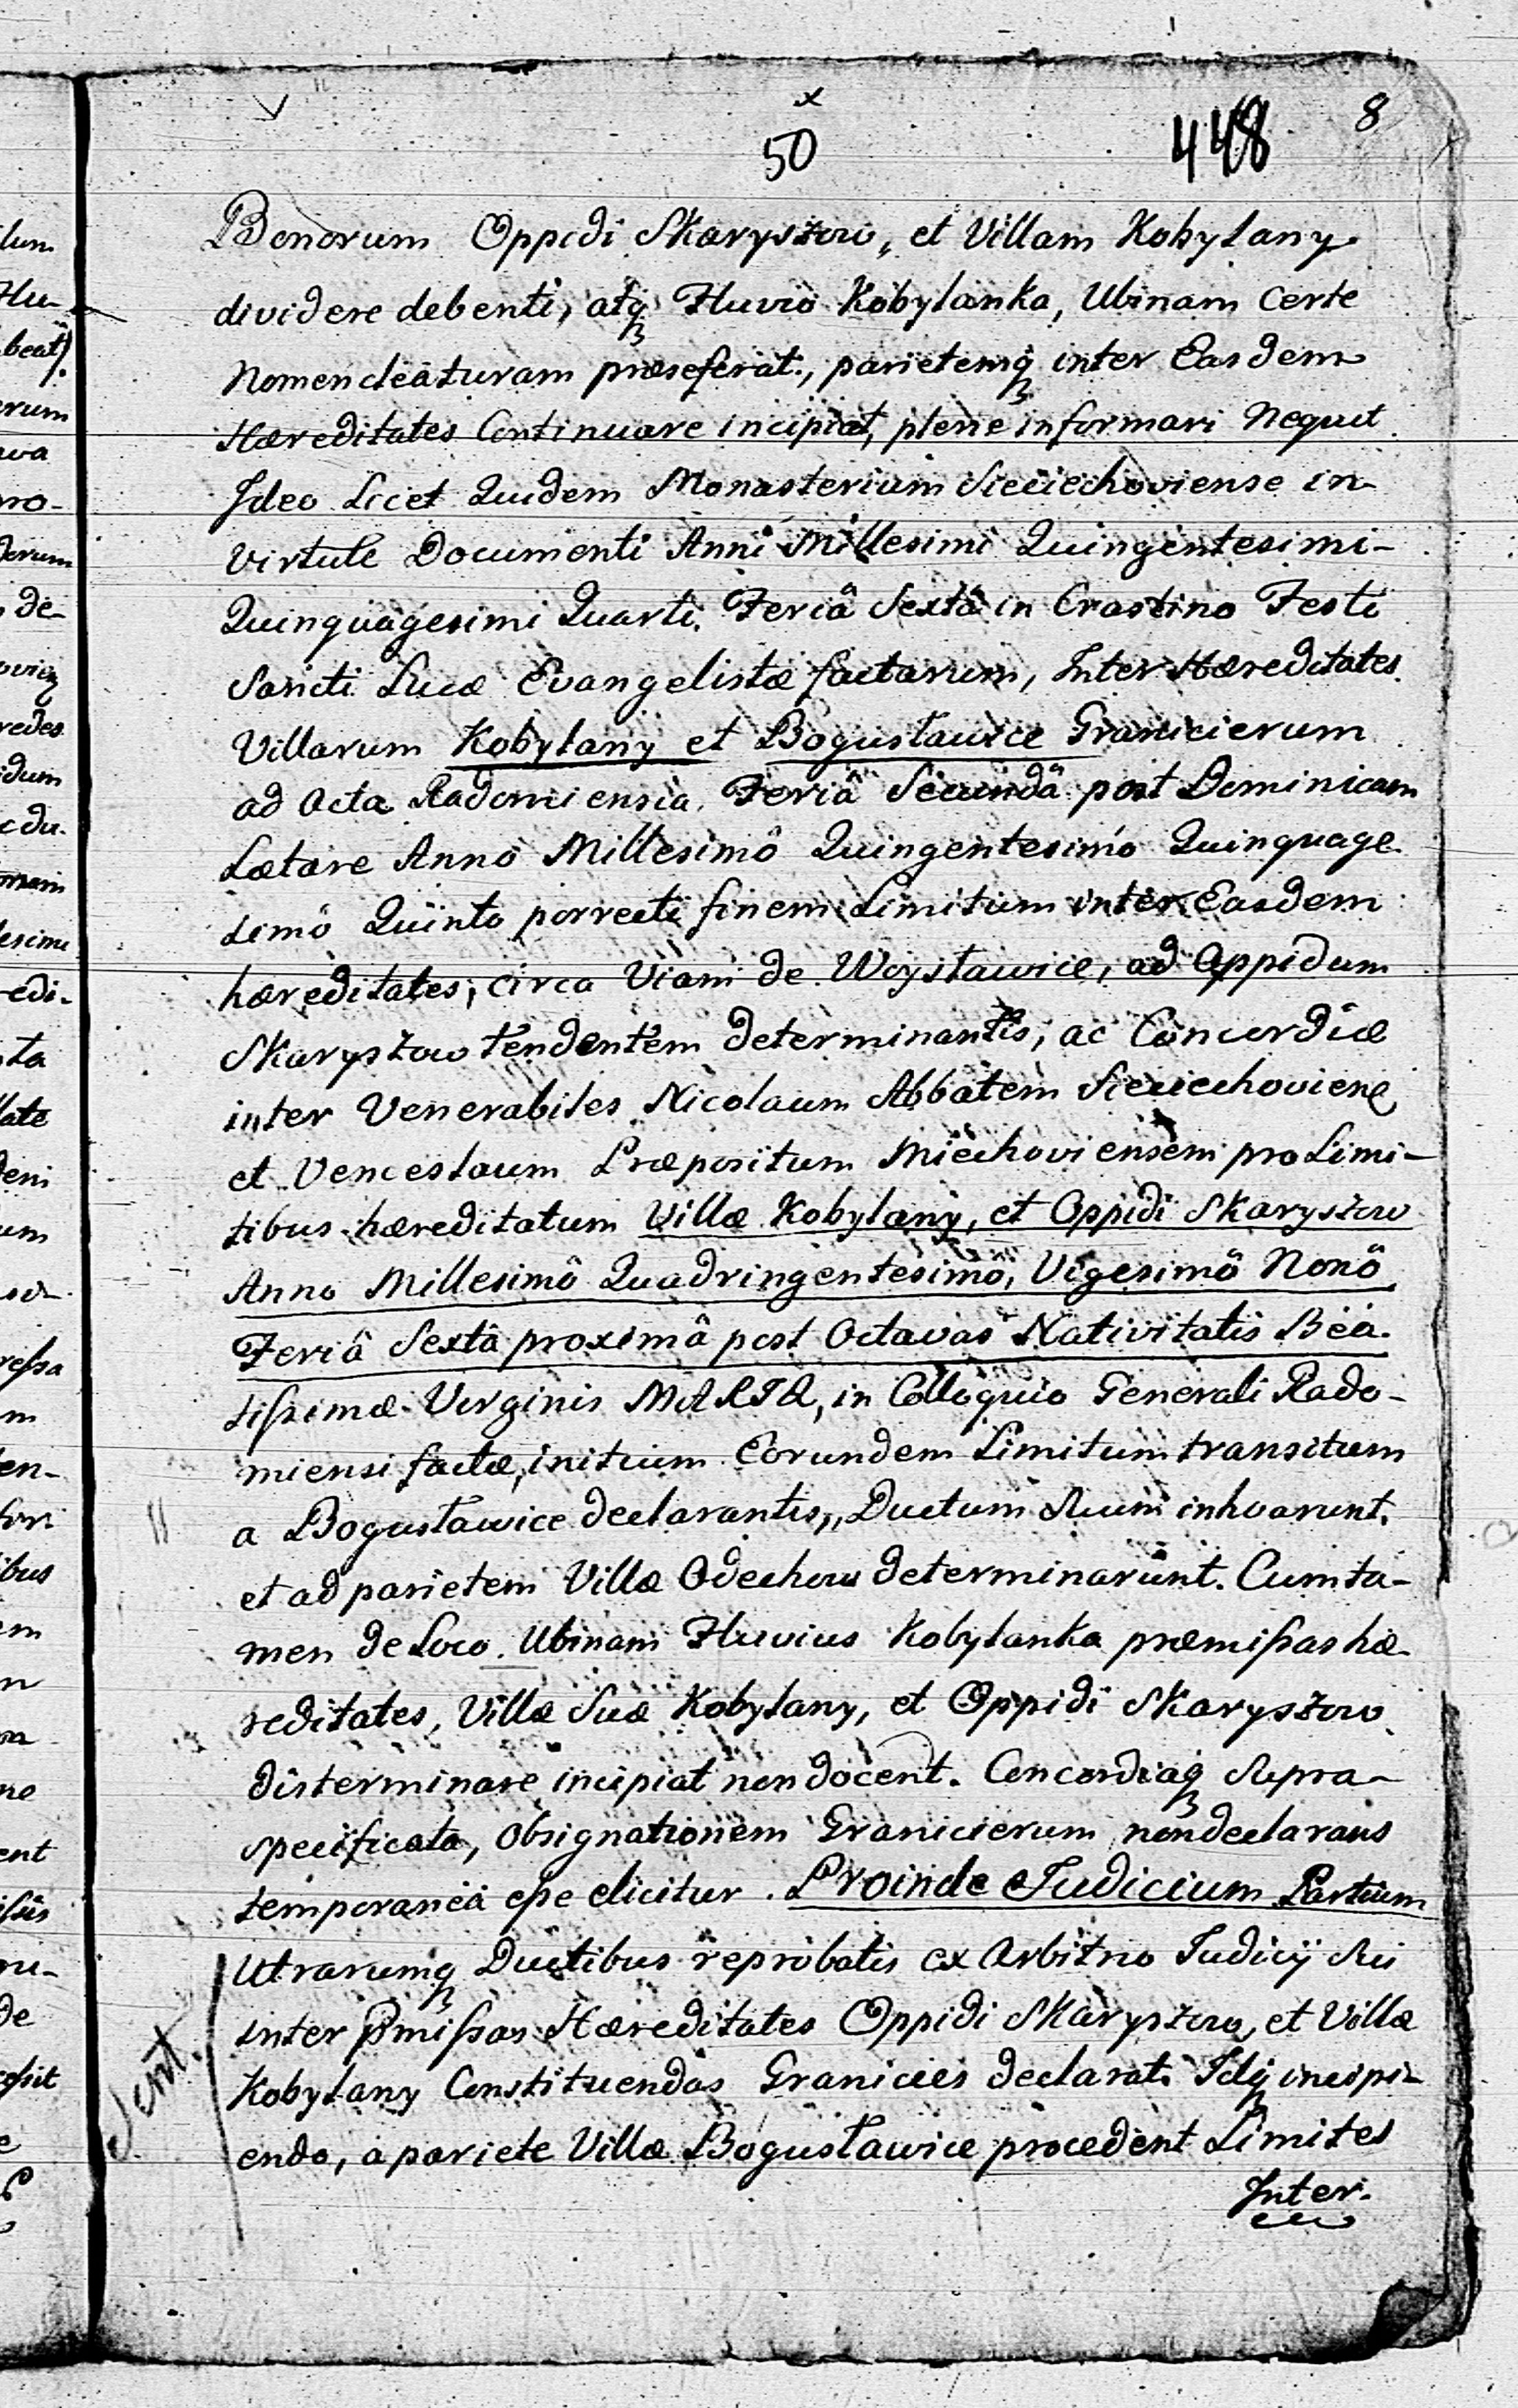 x
50 448 8
Bonorum Oppidi Skaryszow, et Villam Kobylany
dividere debenti, atq₃ Fluvio Kobylanka, Ubinam certe
Nomencleaturam præseferat, parietemq₃ inter Easdem
Hæreditates Continuare incipiat, plene informari Nequit
Ideo Licet Quidem Monasterium Sieciechoviense in
Virtute Documenti Anni Millesimi Quingentesimi-
Quinquagesimi Quarti. Feriâ Sextâ in Crastino Festi
Sancti Lucæ Evangelistæ factarum, Inter Hæreditates
Villarum Kobylany et Bogusławice Granicierum
ad Acta Radomiensia Feriâ Secundâ post Dominicam
Lætare Annô Millesimô Quingentesimô Quinquage
simô Quinto porrecti finem Limitum inter Easdem
hæreditates, circa Viam de Woysławice, ad Oppidum
Skaryszow tendentem determinantis, ac Concordiæ
inter Venerabiles Nicolaum Abbatem Sieciechoviens
et Venceslaum Præpositum Miechoviensem pro Limi-
tibus hæreditatum Villæ Kobylany, et Oppidi Skaryszow
Anno Millesimô Quadringentesimô, Vigesimô Nonô
Feriâ Sextâ proximâ post Octavas Nativitatis Bea-
tissimæ Virginis MARIÆ, in Colloquio Generali Rado-
miensi factæ, initium Eorundem Limitum transitum
a Bogusławice declarantis, Ductum Suum inhoarunt.
et ad parietem Villæ Odechow determinarunt. Cum ta-
men de Loco. Ubinam Fluvius Kobylanka præmissas hæ-
reditates, Villæ Suæ Kobylany, et Oppidi Skaryszow
disterminare incipiat non docent. Concordiaq₃ Supra-
specificata, obsignationem Granicierum non declarans
temporanea esse elicitur. Proinde Judicium Partium
Utrarumq₃ Ductibus reprobatis ex Arbitrio Judicij Sui
inter pmissas Hæreditates Oppidi Skaryszow, et Villæ
Kobylany Constituendas Granicies declarat. Idq₃ incipi-
endo, a pariete Villæ Bogusławice procedent Limites
Inter-
Sent.